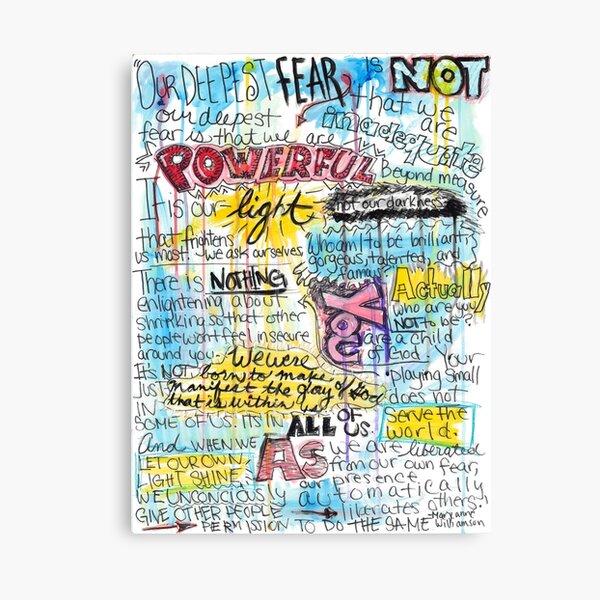 "OUR DEEPEST FEAR is NOT
that we
are
inadequate
our deepest
fear is that we are
POWERFUL
Beyond measure
It is our light
not our darkness
that frightens
us most. We ask ourselves,
"Who am I to be brilliant,
gorgeous, talented, and
famous"
Actually
who are you
NOT to be?
YOU
are a child
of God
Your
playing small
does not
serve the
world.
There is NOTHING
enlightening about
shrinking so that other
people won't feel insecure
around you.
We were
born to make
manifest the glory of God
that is within us
It's NOT
JUST
IN
SOME OF US. ITS IN
ALL OF US.
And when we
LET OUR OWN
LIGHT SHINE,
WE UNCONCIOUSLY
GIVE OTHER PEOPLE
PERMISSION TO DO THE SAME
AS
we are liberated
from our own fear,
our presence
automatically
liberates others."
-Maryanne
Williamson